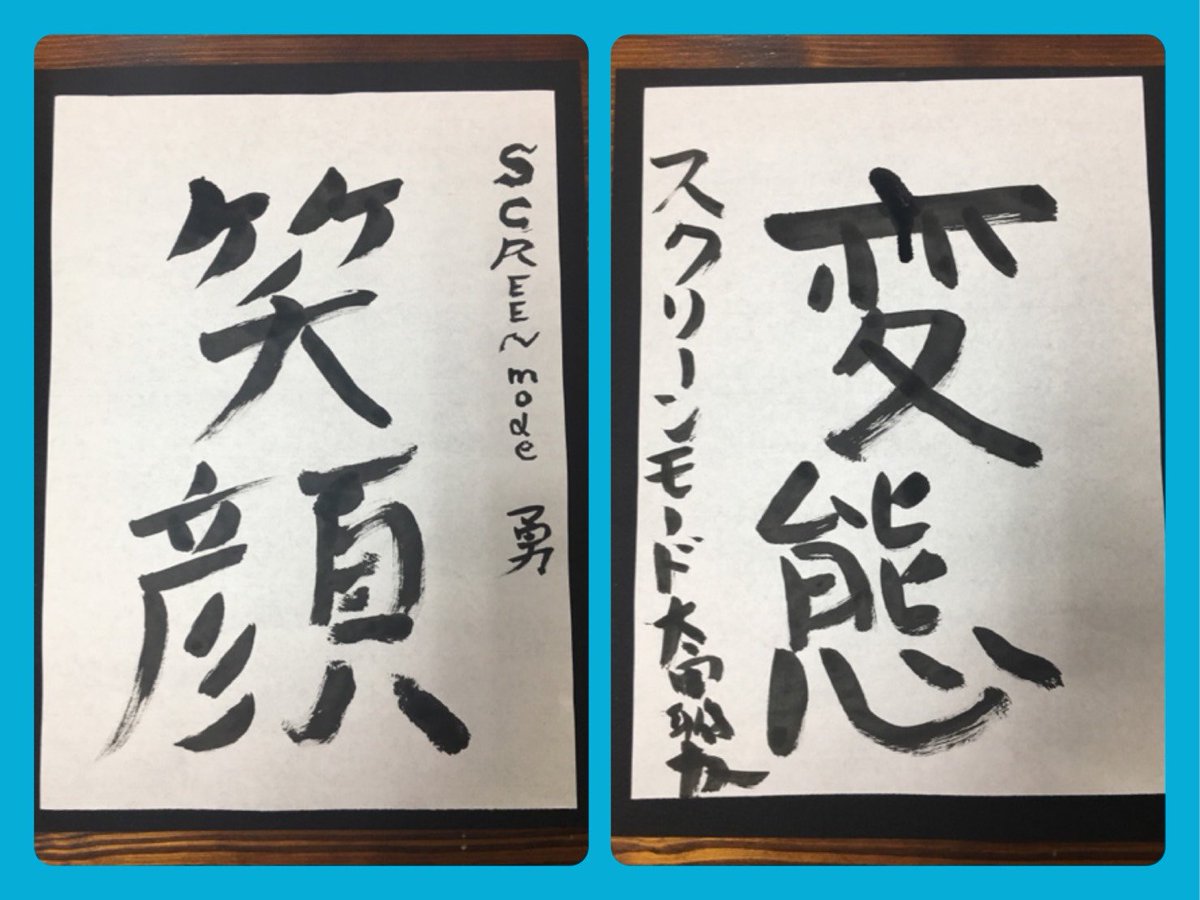 SCREEN mode 勇
笑顔
変態
スクリーンモード 太宙聡